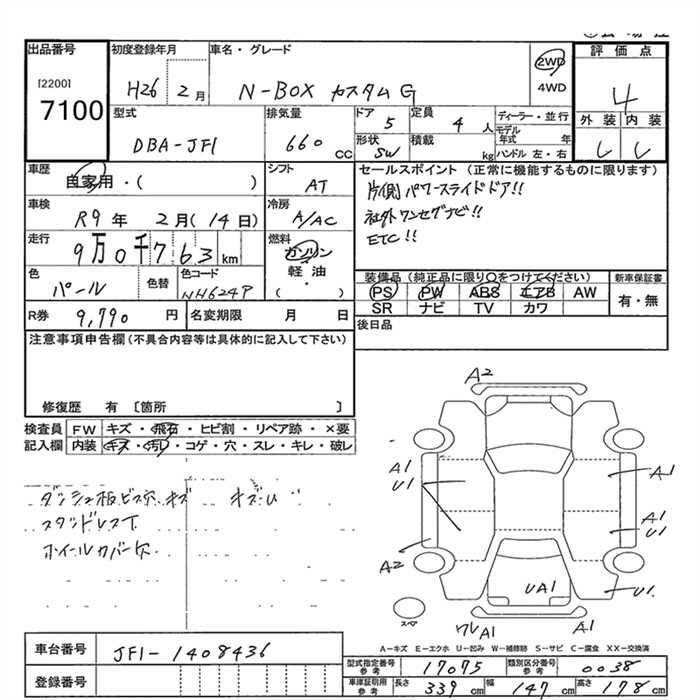 出品番号
[2200]
7100
初度登録年月
H26 2月
車名・グレード
N-BOX カスタムG
2WD
4WD
評価点
4
型式
DBA-JF1
排気量
660 CC
ドア
5
定員
4 人
形状
SW
積載
kg
ディーラー・並行
モデル年式 年
ハンドル 左・右
外装 内装
車歴
自家用・( )
シフト
AT
セールスポイント (正常に機能するものに限ります)
片側 パワースライドドア!!
社外ワンセグナビ!!
ETC!!
車検
R9年 2月(14日)
冷房
A/AC
走行
9万0千763 km
燃料
ガソリン
軽油
( ・ )
色
パール
色替
色コード
NH624P
装備品 (純正品に限り○をつけてください)
PS PW ABS エアB AW
SR ナビ TV カワ
新車保証書
有・無
R券 9,790 円
名変期限 月 日
後日品
注意事項申告欄(不具合内容等は具体的に記入して下さい)
修復歴 有 〔箇所 〕
検査員 FW キズ・飛石・ヒビ割・リペア跡・×要
記入欄 内装 キズ・汚れ・コゲ・穴・スレ・キレ・破レ
ダッシュ板ビス穴、キズ
スタンドレス下
ホイールカバー欠
A2
A1
U1
A1
A1
U1
A2
UA1
U1
スペア
ワレA1
A1
A-キズ E-エクボ U-凹み W-補修跡 S-サビ C-腐食 XX-交換済
車台番号 JF1-1408436
登録番号
型式指定番号 参考 17075
類別区分番号 参考 0038
車庫証明用 参考 長さ 339 cm 幅 147 cm 高さ 178 cm